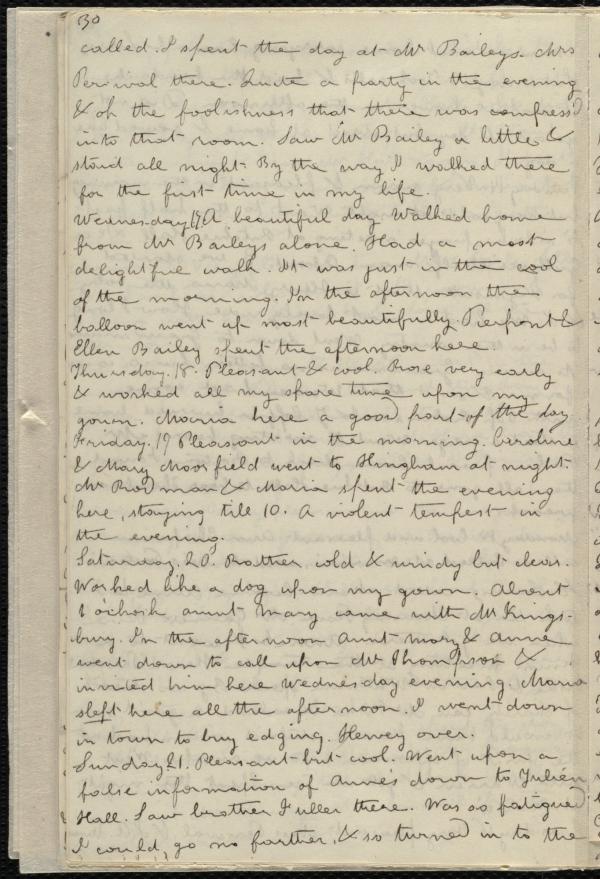 30
called. I spent the day at Mr Baileys. Mrs
Percival there. Quite a party in the evening
& oh the foolishness that there was compress'd
into that room. Saw Mr Bailey a little &
staid all night. By the way I walked there
for the first time in my life.
Wednesday 17. A beautiful day. Walked home
from Mr Baileys alone. Had a most
delightful walk. It was just in the cool
of the morning. In the afternoon the
balloon went up most beautifully. Pierpont &
Ellen Bailey spent the afternoon here.
Thursday. 18. Pleasant & cool. Rose very early
& worked all my spare time upon my
gown. Maria here a good part of the day.
Friday. 19 Pleasant in the morning. Caroline
& Mary Moorfield went to Hingham at night.
Mr Rodman & Maria spent the evening
here, staying till 10. A violent tempest in
the evening.
Saturday. 20. Rather cold & windy but clear.
Worked like a dog upon my gown. About
1 o'clock aunt Mary came with Mr Kings-
bury. In the afternoon Aunt Mary & Anne
went down to call upon Mr Thompson &
invited him here Wednesday evening. Maria
slept here all the afternoon. I went down
in town to buy edging. Hervey over.
Sunday 21. Pleasant but cool. Went upon a
false information of Anne's down to Julien
Hall. Saw brother Fuller there. Was so fatigued
I could go no farther, & so turned in to the